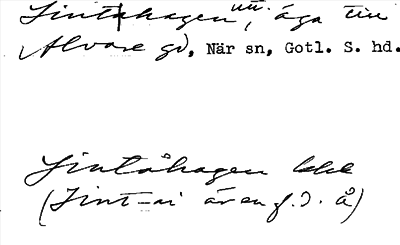 Jintåhagen, äga till
Alvare gd, När sn, Gotl. S. hd.
Jintåhagen
(Jint-ai är en f.d. å)